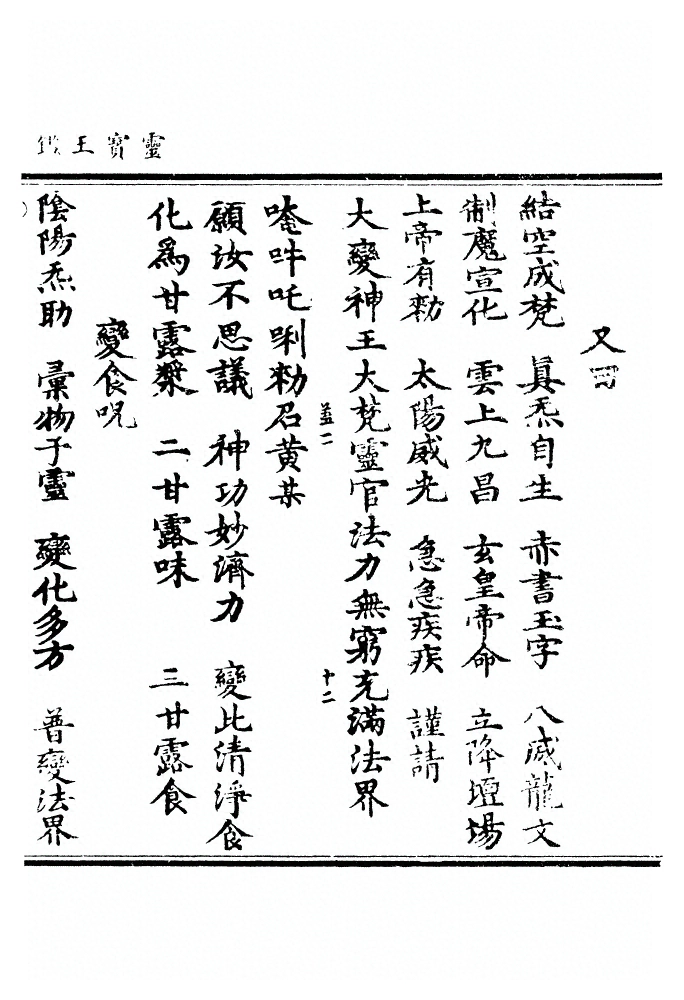 靈寶王鑑
又四
結空成梵 眞炁自生 赤書玉字 八威龍文
制魔宣化 雲上九昌 玄皇帝命 立降壇場
上帝有勑 太陽威光 急急疾疾 謹請
大變神王大梵靈官法力無窮充滿法界
益一 十二
唵吽吒唎勑召黄某
願汝不思議 神功妙濟力 變比清淨食
化為甘露漿 二甘露味 三甘露食
變食呪
陰陽炁助 彙物子靈 變化多方 普變法界